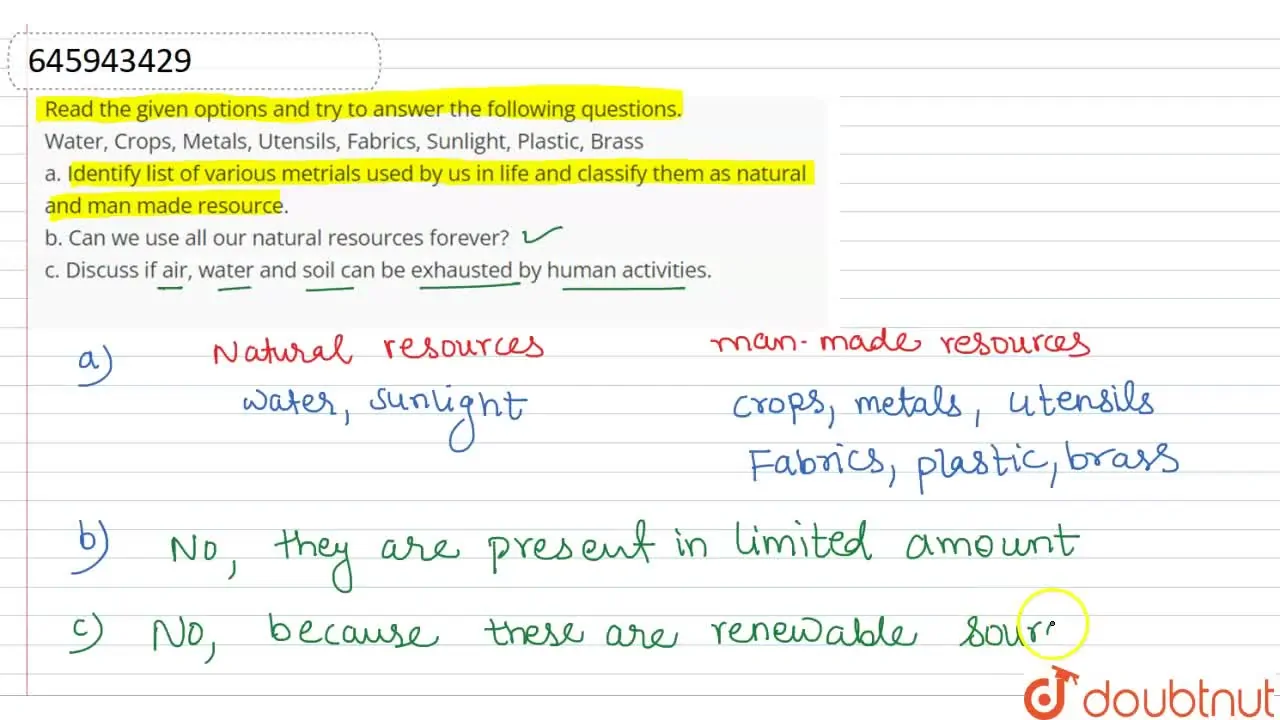 645943429
Read the given options and try to answer the following questions.
Water, Crops, Metals, Utensils, Fabrics, Sunlight, Plastic, Brass
a. Identify list of various metrials used by us in life and classify them as natural
and man made resource.
b. Can we use all our natural resources forever?
c. Discuss if air, water and soil can be exhausted by human activities.
a) Natural resources man-made resources
water, sunlight crops, metals, utensils
Fabrics, plastic, brass
b) No, they are present in limited amount
c) No, because these are renewable sour
doubtnut